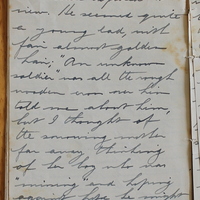 view. He seemed quite
a young lad, with
fair almost golden
hair; "An unknown
soldier" was all the rough
wooden cross over him
told me about him,
but I thought of
the sorrowing mother
far away thinking
of her boy who was
"missing" and hoping
against hope he might